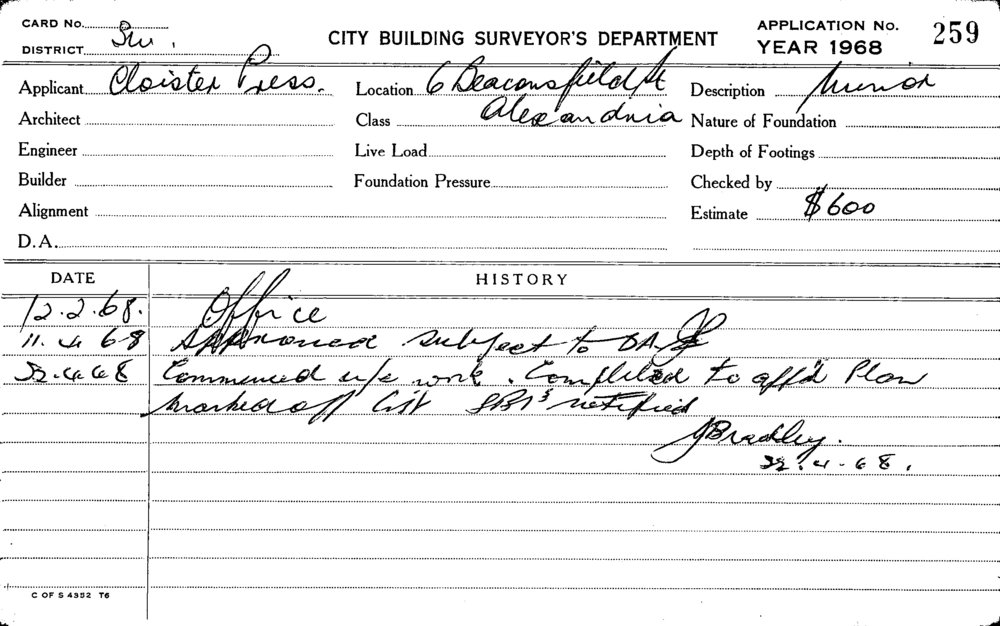 CARD No. APPLICATION No. 259
DISTRICT Sw. CITY BUILDING SURVEYOR'S DEPARTMENT YEAR 1968
Applicant Cloister Press. Location 6 Beaconsfield St Description Minor
Architect Class Alexandria Nature of Foundation
Engineer Live Load Depth of Footings
Builder Foundation Pressure Checked by
Alignment Estimate $600
D.A.
DATE HISTORY
12.2.68. Office
11.4 68 Approved subject to DA
22.4.68 Commenced work. Completed to app'd Plan
Marked off list notified
J Bradley.
22.4.68.
C OF S 4352 T6